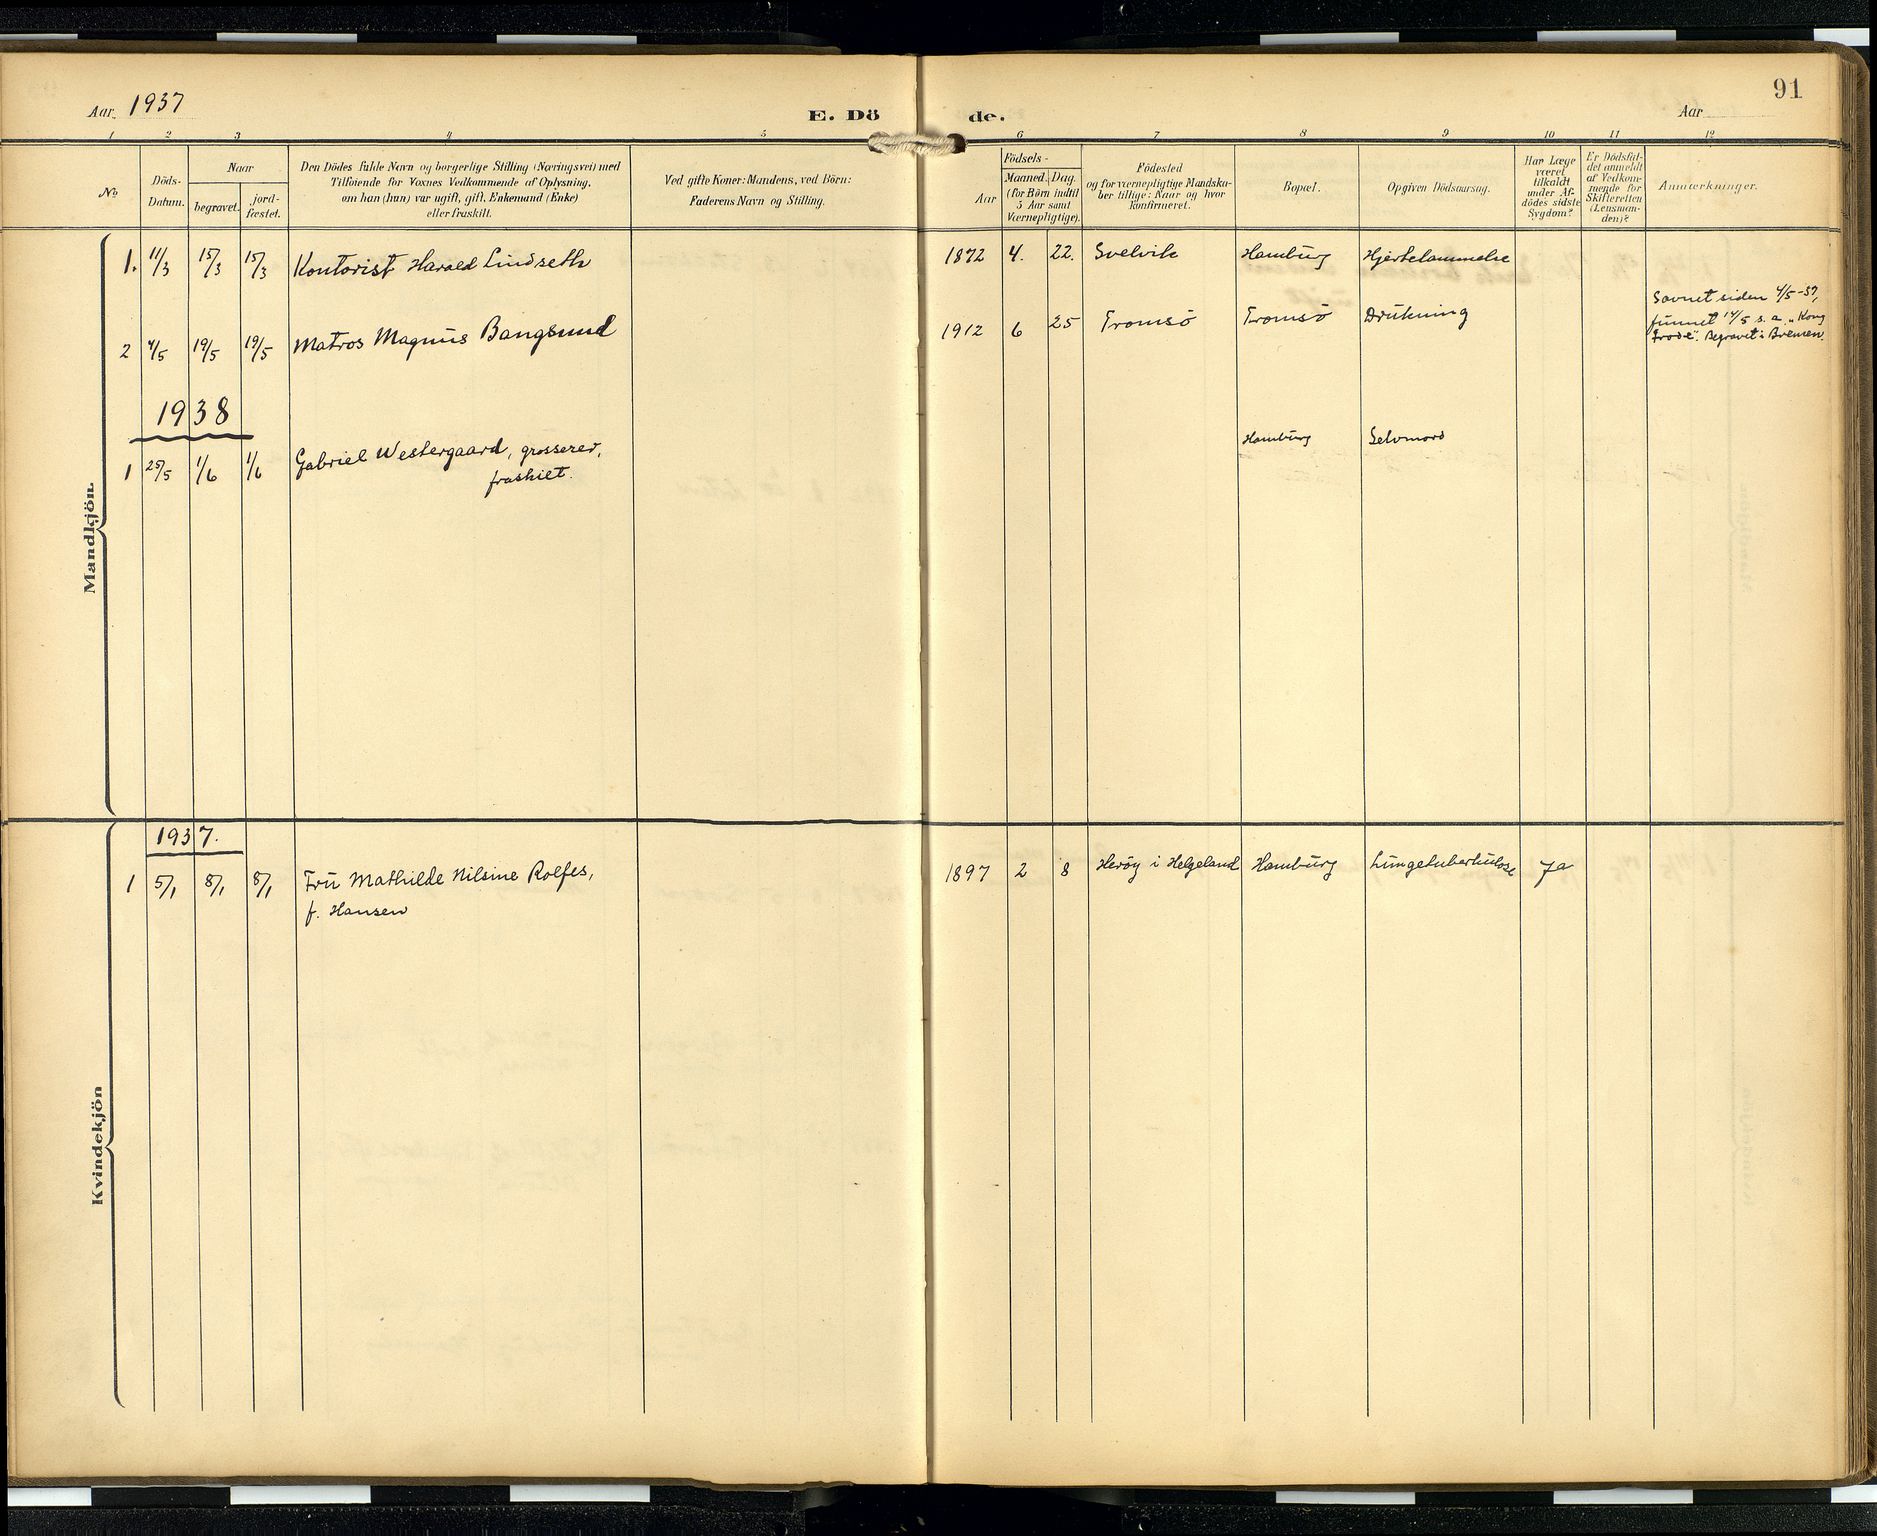 91
Aar 1937
E. Döde.
Aar
1 2 3 4 5 6 7 8 9 10 11 12
No
Döds-
Datum.
Naar
begravet.
jord-
fæstet.
Den Dödes fulde Navn og borgerlige Stilling (Næringsvei) med
Tilföiende for Voxnes Vedkommende af Oplysning,
om han (hun) var ugift, gift, Enkemand (Enke)
eller fraskilt.
Ved gifte Koner: Mandens, ved Börn:
Faderens Navn og Stilling.
Födsels-
Aar
Maaned. Dag.
(for Börn indtil
5 Aar samt
Værnepligtige).
Födested
og for værnepligtige Mandska-
ber tillige: Naar og hvor
konfirmeret.
Bopæl.
Opgiven Dödsaarsag.
Har Læge
været
tilkaldt
under Af-
dödes sidste
Sygdom?
Er Dödsfal-
det anmeldt
af Vedkom-
mende for
Skifteretten
(Lensman-
den)?
Anmærkninger.
Mandkjön.
1. 11/3 15/3 15/3 Kontorist Harald Lindseth 1872 4. 22. Svelvik Hamburg Hjertelammelse
2 4/5 19/5 19/5 Matros Magnus Bangsund 1912 6 25 Tromsö Tromsö Drukning
Savnet siden 4/5-37,
funnet 14/5 s. a. "Kong
Frode". Begravet i Bremen.
1938
1 25/5 1/6 1/6 Gabriel Westergaard, grosserer,
fraskilt.
Hamburg Selvmord
Kvindekjön
1937.
1 5/1 8/1 8/1 Fru Mathilde Nilsine Rolfes,
f. Hansen
1897 2 8 Heröy i Helgeland Hamburg Lungetuberkulose Ja